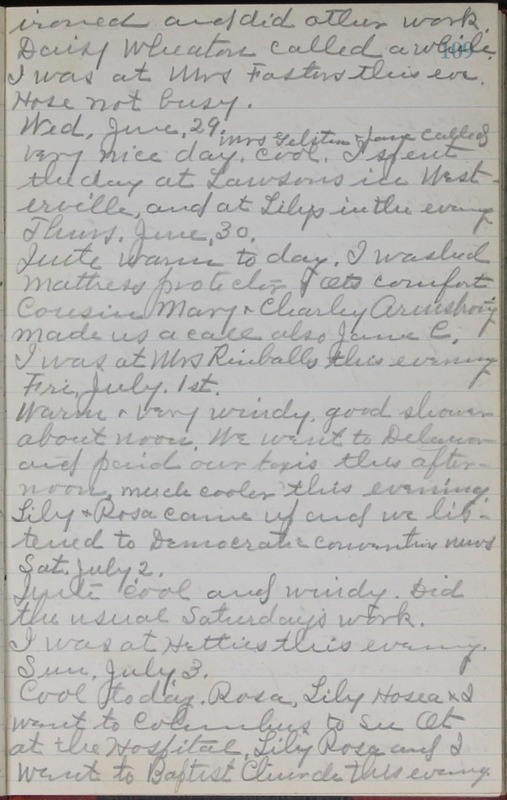 ironed and did other work.
Daisy Wheaton called a while.
189
I was at Mrs Fosters this eve.
Hose not busy.
Wed, June, 29.
Mrs Gelston & Jane called
very nice day. Cool. I spent
the day at Lawsons in West-
erville, and at Lilys in the eveng
Thurs. June, 30.
Quite warm to day. I washed
mattress protector & comfort
Cousin Mary & Charley Armstrong
made us a call also Jane C.
I was at Mrs Rinballs this evening
Fri, July. 1st.
Warm & very windy. good shower
about noon. We went to Delaware
and paid our taxis this after-
noon. much cooler this evening.
Lily & Rosa came up and we lis-
tened to Democratic convention news
Sat. July 2.
Quite cool and windy. Did
the usual Saturday's work.
I was at Hetties this evening.
Sun. July 3.
Cool today. Rosa, Lily Hosea & I
went to Columbus to see
at the Hospital. Lily Rosa and I
went to Baptist Church this eveng.